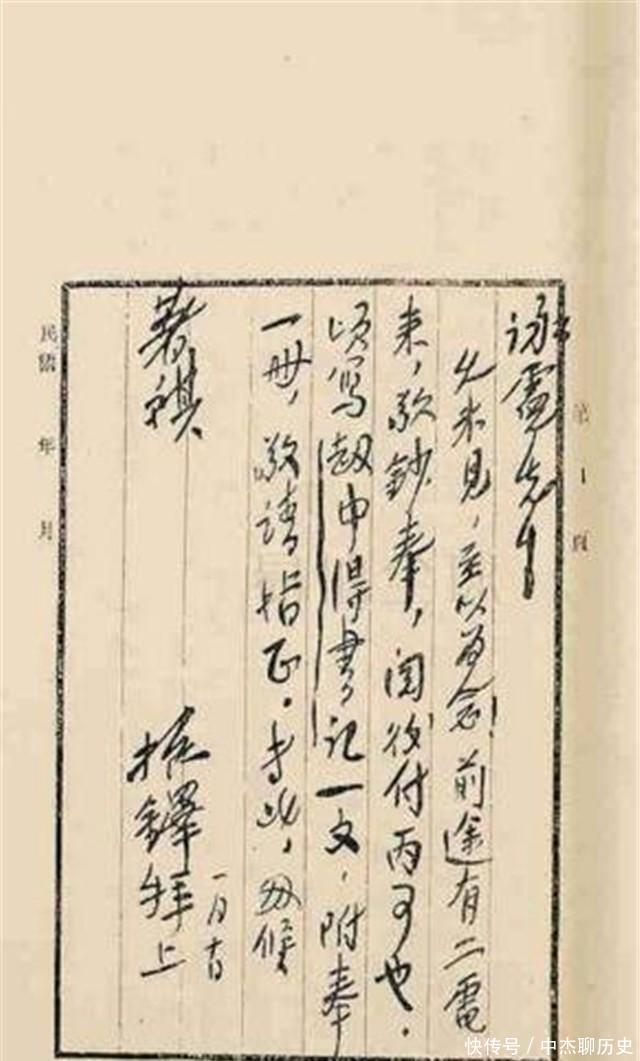 第 1 頁
詠霓先生
久未見，至以為念！前途有二電
来，敬鈔奉，閱後付丙可也。
頃寫劫中得書記一文，附奉
一冊，敬請指正。专此，敬候
著祺
振鐸拜上
一月十日
民國 年 月
快传号／中杰聊历史